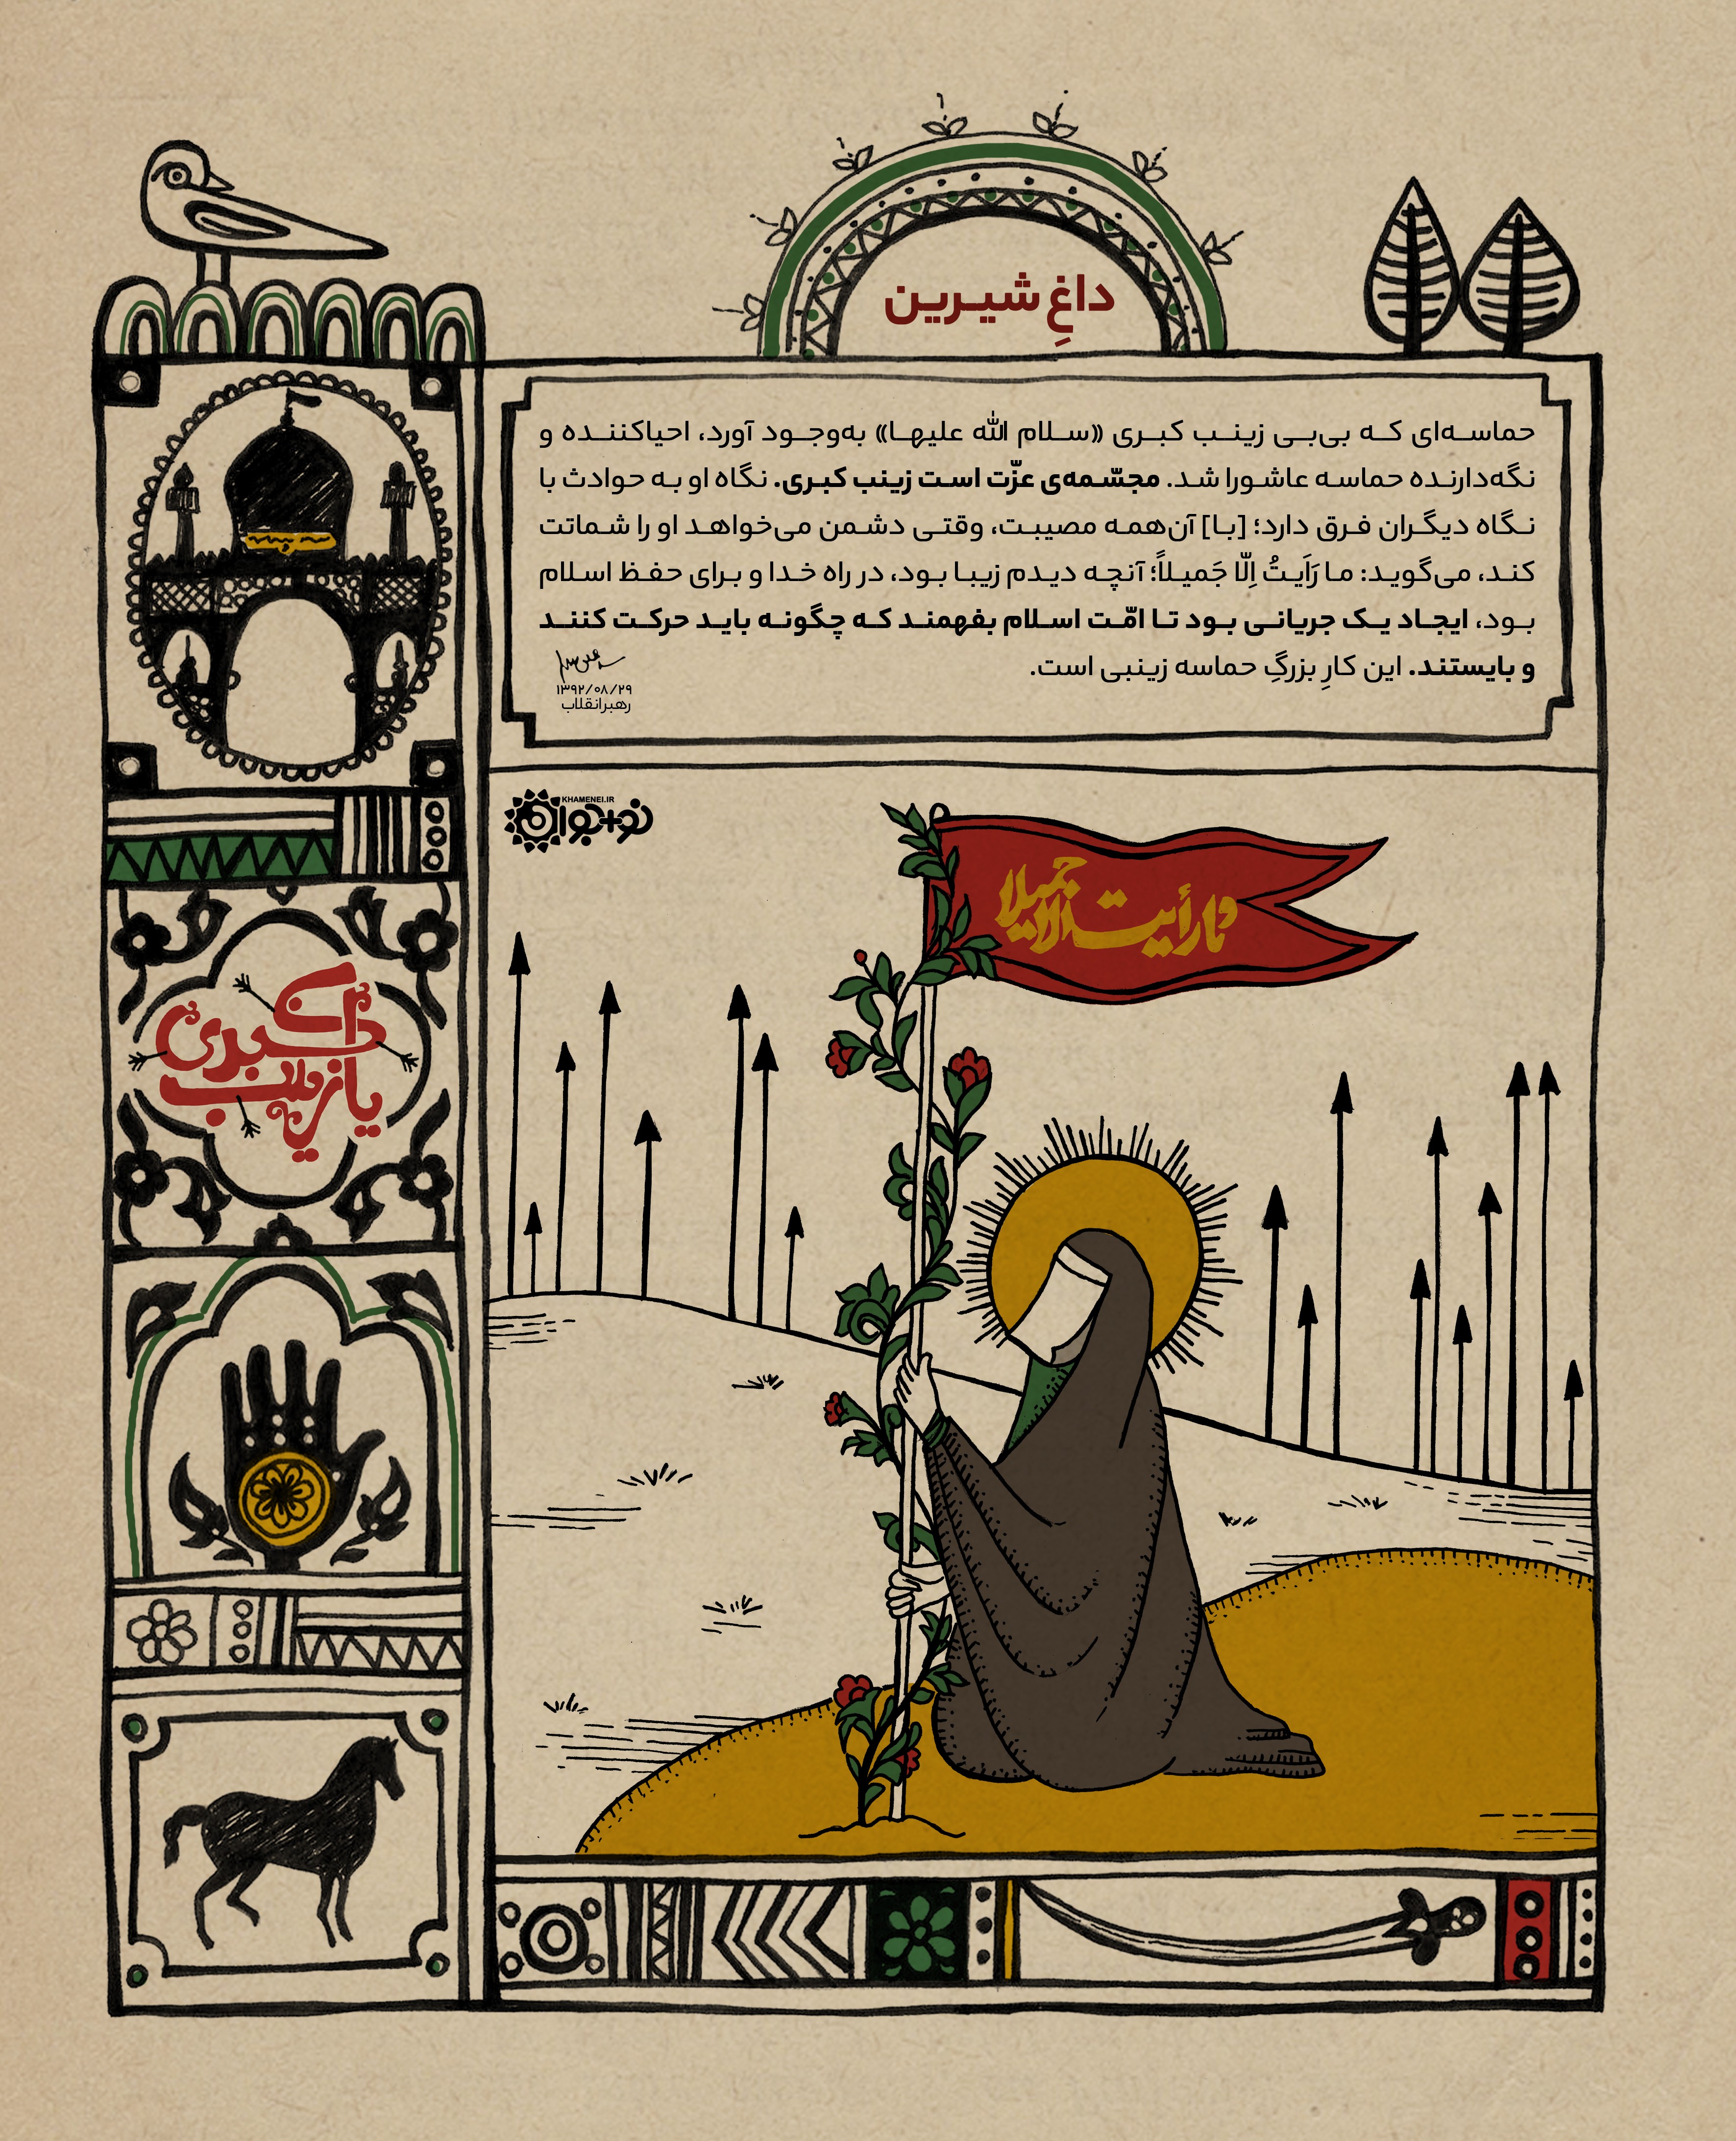 داغِ شیرین
حماسه‌ای که بی‌بی زینب کبری «سلام الله علیها» به‌وجود آورد، احیاکننده و
نگه‌دارنده حماسه عاشورا شد. مجسّمه‌ی عزّت است زینب کبری. نگاه او به حوادث با
نگاه دیگران فرق دارد؛ [با] آن‌همه مصیبت، وقتی دشمن می‌خواهد او را شماتت
کند، می‌گوید: ما رَاَیتُ اِلّا جَمیلاً؛ آنچه دیدم زیبا بود، در راه خدا و برای حفظ اسلام
بود، ایجاد یک جریانی بود تا امّت اسلام بفهمند که چگونه باید حرکت کنند
و بایستند. این کارِ بزرگِ حماسه زینبی است.
۱۳۹۲/۰۸/۲۹
رهبرانقلاب
KHAMENEI.IR
نو+جوان
ما رأیت الا جمیلا
یا زینب
کبری